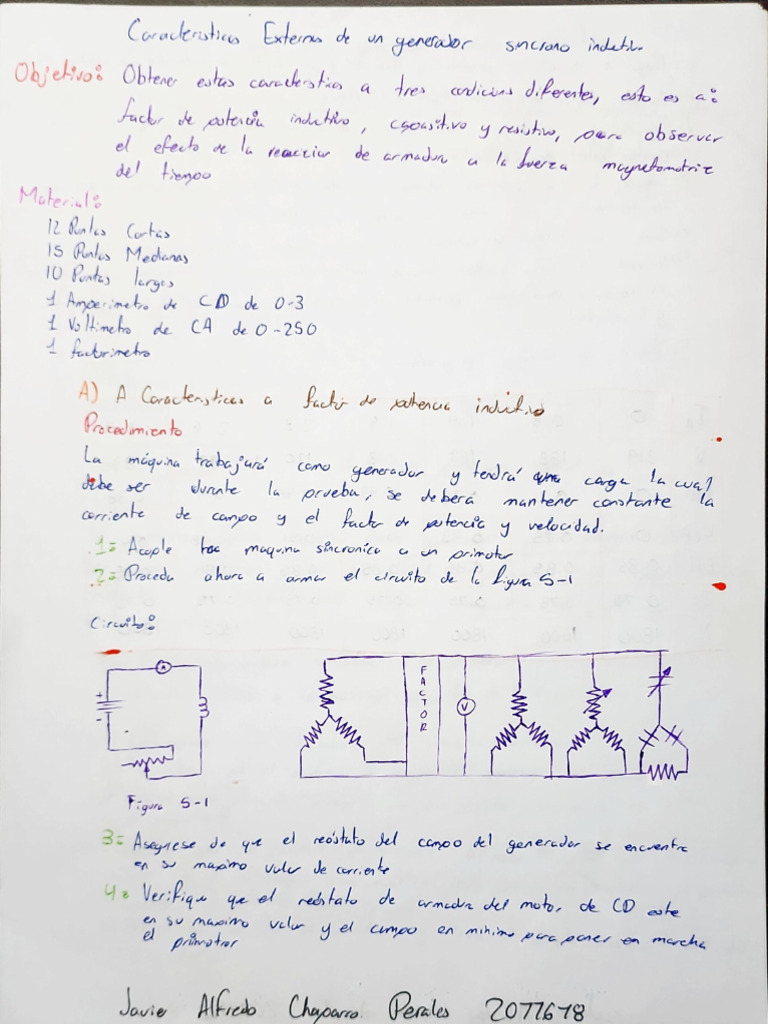 Caracteristicas Externas de un generador sincrono inductivo
Objetivo: Obtener estas caracteristicas a tres condiciones diferentes, esto es a:
factor de potencia inductivo, capasitivo y resistivo, para observar
el efecto de la reaccion de armadura a la fuerza magnetomotriz
del tiempo
Material:
12 Puntas Cortas
15 Puntas Medianas
10 Puntas largas
1 Amperimetro de CD de 0-3
1 Voltimetro de CA de 0-250
1 factorimetro
A) A Caracteristicas a factor de potencia inductivo
Procedimiento
La máquina trabajará como generador y tendrá una carga la cual
debe ser durante la prueba, se deberá mantener constante la
corriente de campo y el factor de potencia y velocidad.
1= Acople la maquina sincronica a un primotor
2= Proceda ahora a armar el circuito de la figura 5-1
Circuito:
A
+
-
FACTOR
V
Figura 5-1
3= Asegurese de que el reóstato del campo del generador se encuentra
en su maximo valor de corriente
4= Verifique que el reóstato de armadura del motor, de CD este
en su maximo valor y el campo en minimo para poner en marcha
el primotor
Javier Alfredo Chaparro Perales 2077678